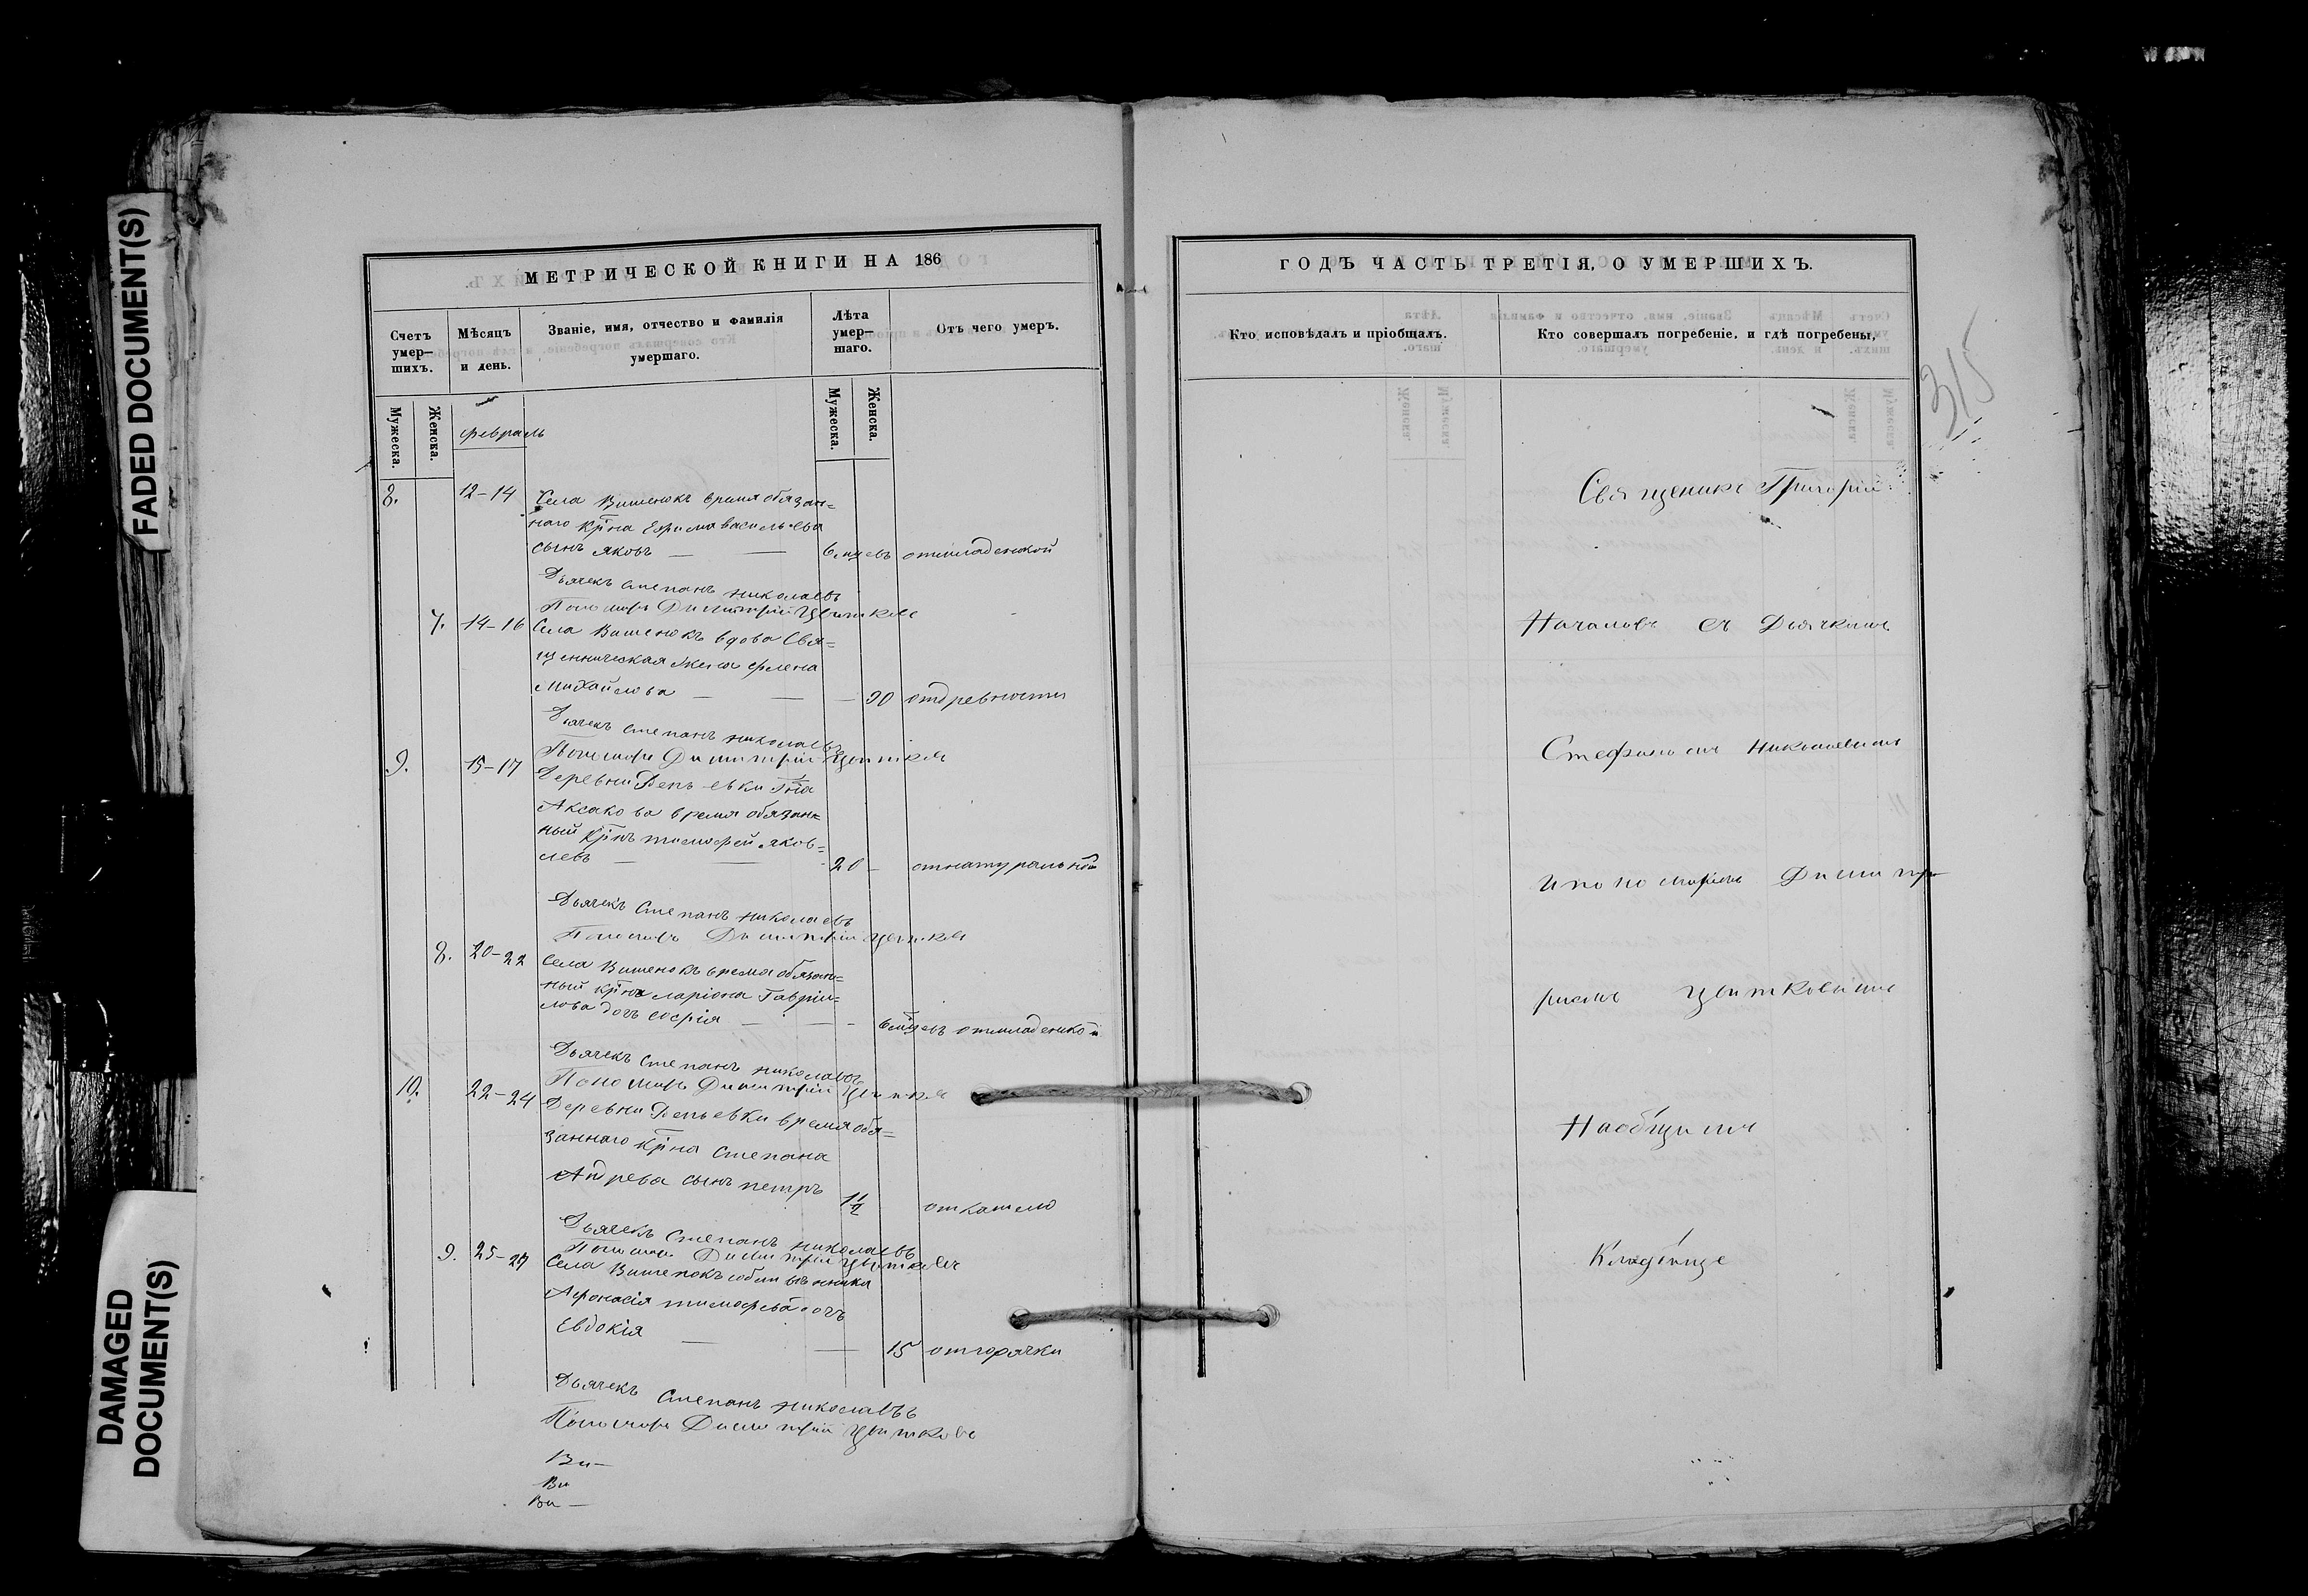 FADED DOCUMENT(S)
DAMAGED
DOCUMENT(S)
МЕТРИЧЕСКОЙ КНИГИ НА 186
Счетъ умер–шихъ.
Мѣсяцъ и день.
Званіе, имя, отчество и фамилія умершаго.
Лѣта умер–шаго.
Отъ чего умеръ.
Мужеска.
Женска.
Мужеска.
Женска.
февраль
8. 12–14 Села Вишенокъ время обязан=
наго кр̃на Ефима васильева
сынъ яковъ — — 6 мцевъ отмладенской
Дьячекъ Степанъ николаевъ
Пономарь Димитрій Цвѣтковъ
7. 14–16 Села Вишенокъ вдова Свя=
щенническая жена елена
Михайлова — — — 90 отдревности
Дьячекъ степанъ николаевъ
Пономарь Димитрій Цвѣтковъ
9. 15–17 Деревни Репьевки Гна
Аксакова время обязан=
ный кр̃нъ тимофей яков=
левъ — — 20 — отнатуральной
Дьячекъ Степанъ николаевъ
Пономарь Димитрій Цвѣтковъ
8. 20–22 Села Вишенокъ время обязан=
ный кр̃на ларіона Гаврии=
лова дочь софія — — — 6 мцевъ отмладенской
Дьячекъ Степанъ николаевъ
Пономарь Димитрій Цвѣтковъ
10. 22–24 Деревни Репьевки время обя=
заннаго кр̃на Степана
Андрева сынъ петръ
откашлю
Дьячекъ Степанъ николаевъ
Пономарь Димитрій Цвѣтковъ
9. 25–27 Села Вишенокъ собственника
Афонасія тимофева дочь
Евдокія — — 15 отгорячки
Дьячекъ Степанъ николаевъ
Пономарь Димитрій Цвѣтковъ
Ви–
Ви
Ви –
ГОДЪ ЧАСТЬ ТРЕТІЯ, О УМЕРШИХЪ.
Кто исповѣдалъ и пріобщалъ.
Кто совершалъ погребеніе, и гдѣ погребены,
315
Священикъ Григорій
съ Дьячкомъ
Стефаномъ Николаевымъ
ипономаремъ Димит
ріемъ Цвѣтковымъ
Наобщемъ
Кладбище